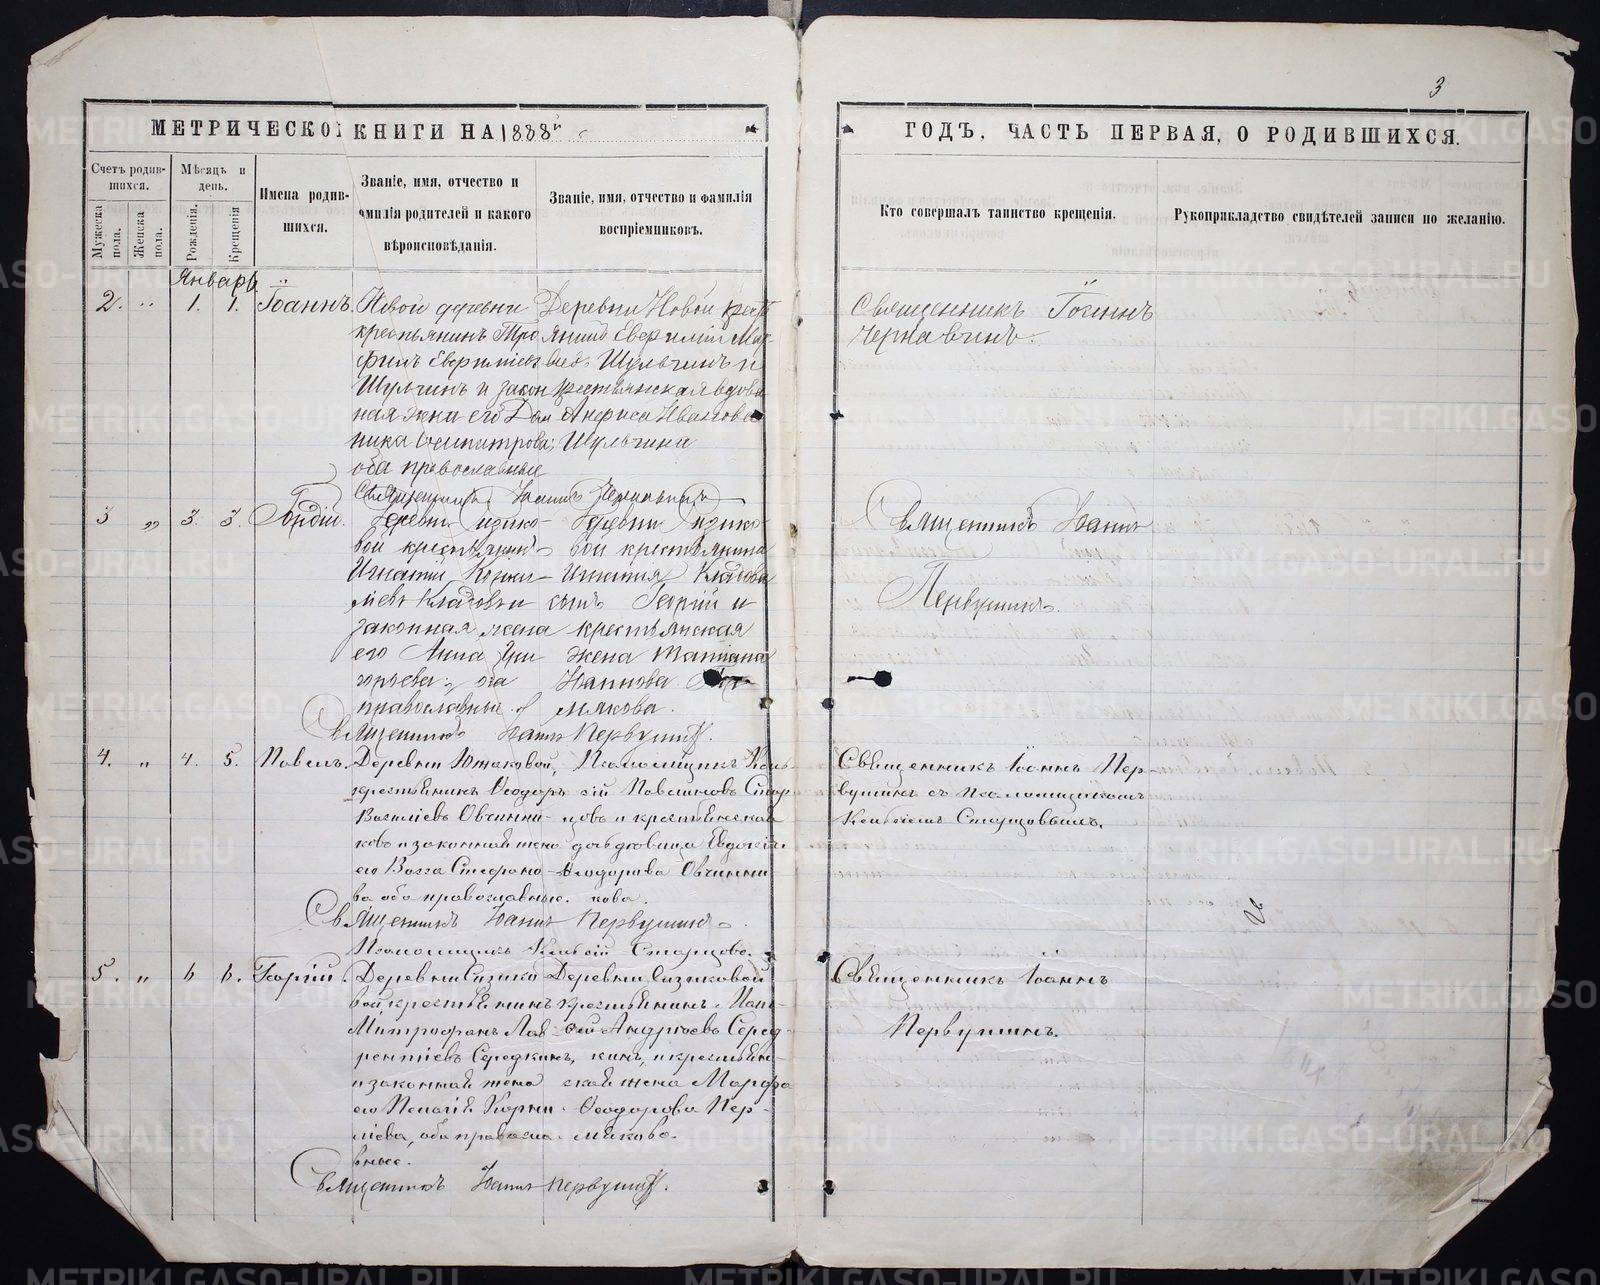 3
МЕТРИЧЕСКОЙ КНИГИ НА 1888й
ГОДЪ, ЧАСТЬ ПЕРВАЯ, О РОДИВШИХСЯ.
Счетъ родив-
шихся.
Мужеска
пола.
Женска
пола.
Мѣсяцъ и
день.
Рожденія.
Крещенія
Имена родив-
шихся.
Званіе, имя, отчество и
фамилія родителей и какого
вѣроисповѣданія.
Званіе, имя, отчество и фамилія
воспріемниковъ.
Кто совершалъ таинство крещенія.
Рукоприкладство свидѣтелей записи по желанію.
Январь
2. " 1. 1. Іоаннъ.
Новой деревни
крестьянинъ Тро
фимъ
Шульгинъ и закон
ная жена его Дом
ника
оба православные
Деревни Новой крест
Шульгинъ и
крестьянская вдова
Анфиса Иванова
Шульгина
Священникъ Іоаннъ
Чернавинъ.
Священникъ Іоаннъ Чернавинъ
3 " 3. 3.
Деревни Сизико-
вой крестьянинъ
Игнатій Корни-
ліевъ Кладовъ и
законная жена
его Анна Гри
горьева; оба
православные
Деревни Сизико-
вой крестьянина
Игнатія Кладова
сынъ Георгій и
крестьянская
жена Татіана
Иванова Пер-
мякова.
Священникъ Іоаннъ
Первушинъ.
Священникъ Іоаннъ Первушинъ.
4. " 4. 5. Павелъ.
Деревни Южаковой,
крестьянинъ Ѳеодоръ
Василіевъ Овчинни-
ковъ и законная жена
его Васса Стефано-
ва оба православные.
Псаломщикъ Кель-
сій Павлиновъ Стар
цовъ и крестьянская
дочь дѣвица Евдокія
Ѳеодорова Овчинни
кова.
Священникъ Іоаннъ Пер-
вушинъ съ Псаломщикомъ
Кельсіемъ Старцовымъ.
Священникъ Іоаннъ Первушинъ.
Псаломщикъ Кельсій Старцовъ.
5. " 6 6. Георгій.
Деревни Сизико
вой, крестьянинъ
Митрофанъ Лав
рентіевъ Середкинъ,
и законная жена
его Пелагія Корни-
ліева, оба правосла-
вные.
Деревни Сизиковой
крестьянинъ
Андреевъ Серед-
кинъ, и крестьян-
ская жена Марѳа
Ѳеодорова Пер-
мякова.
Священникъ Іоаннъ
Первушинъ.
Священникъ Іоаннъ Первушинъ.
METRIKI.GASO-URAL.RU